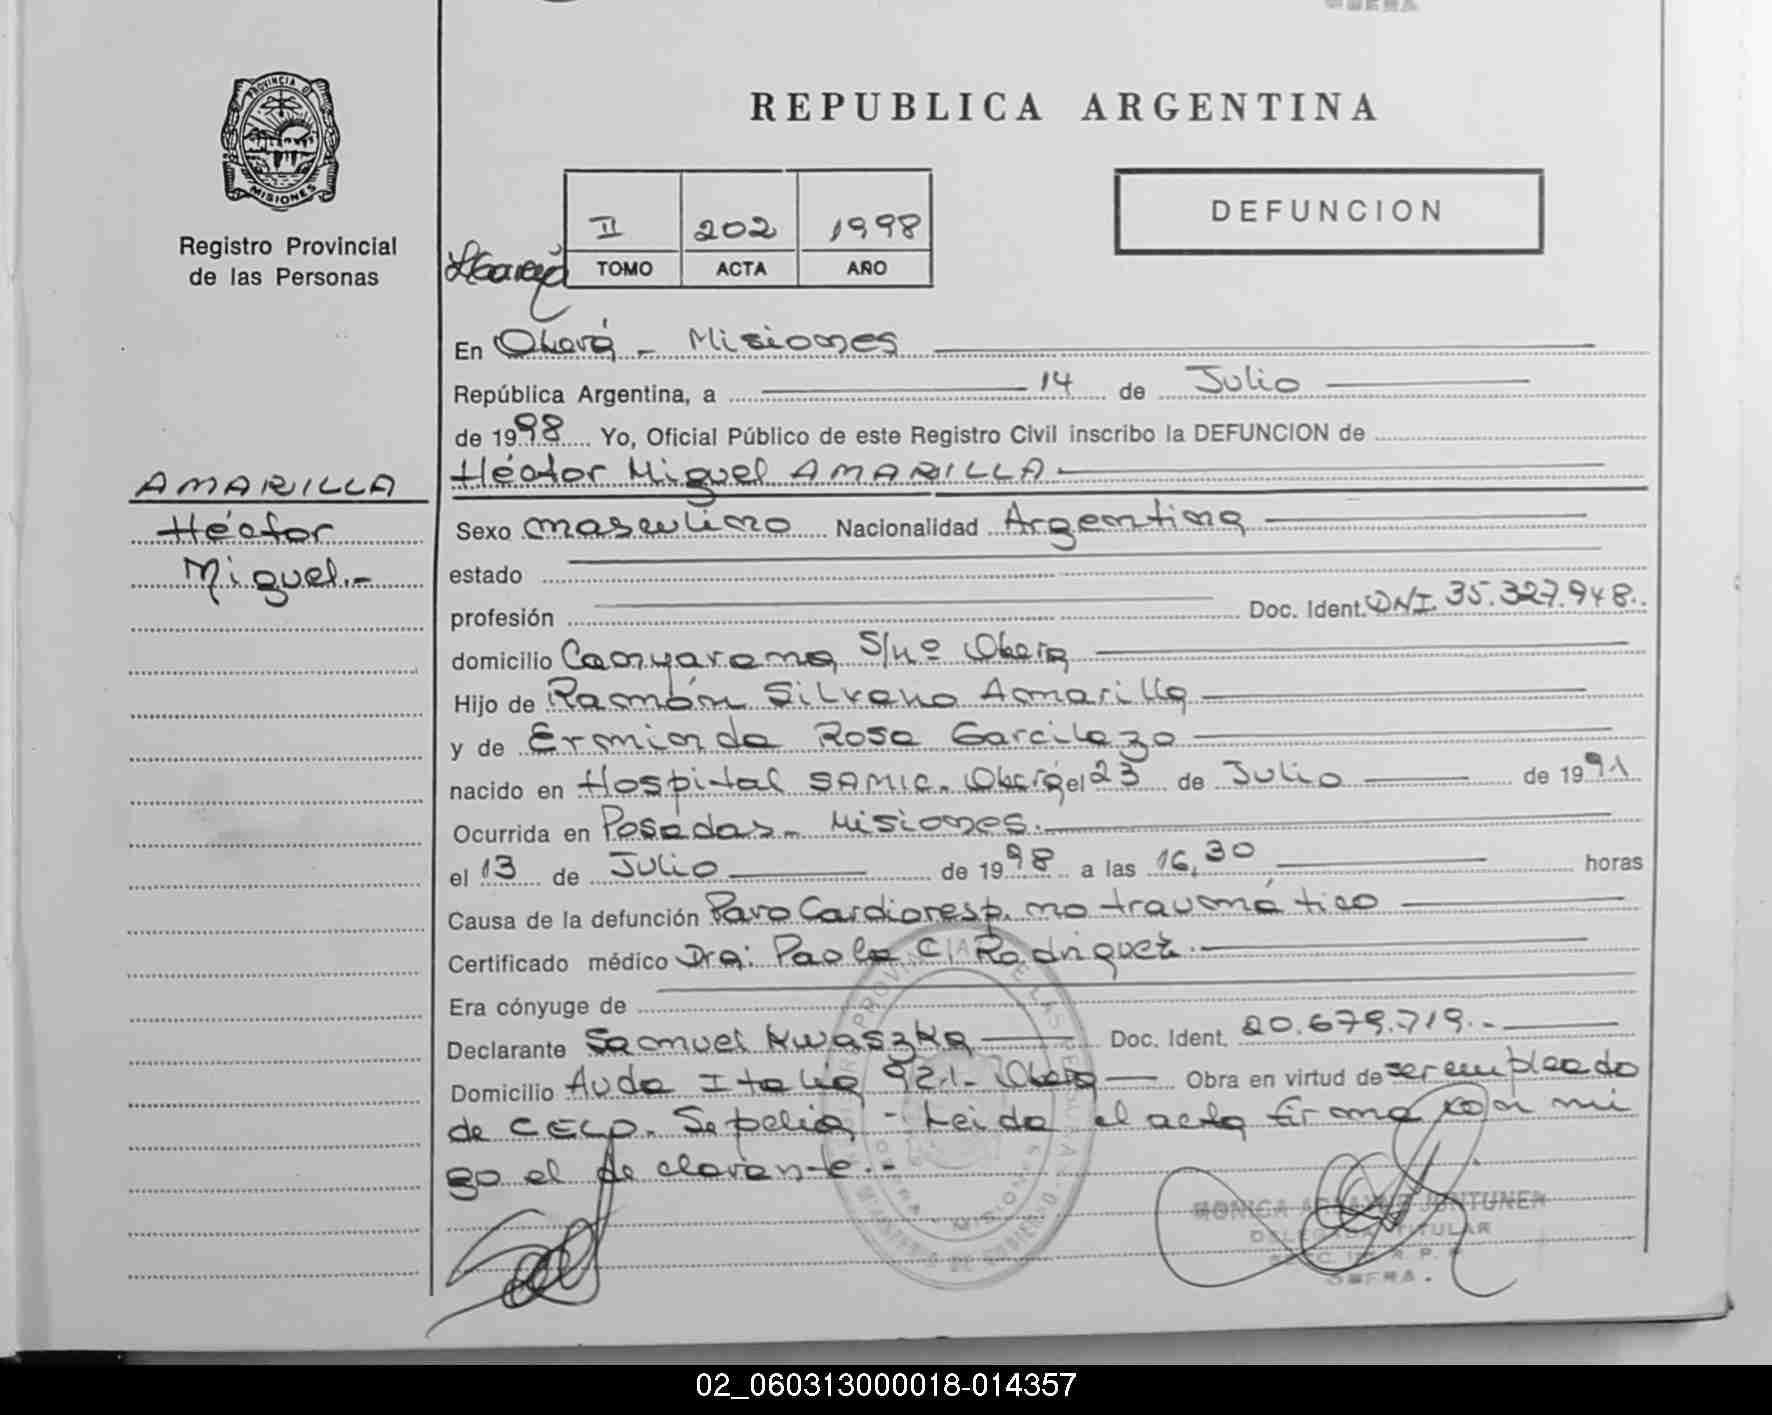 OBERA
PROVINCIA DE
MISIONES
Registro Provincial
de las Personas
REPUBLICA ARGENTINA
DEFUNCION
II 202 1998
TOMO ACTA AÑO
En Oberá - Misiones
República Argentina, a 14 de Julio
de 1998 Yo, Oficial Público de este Registro Civil inscribo la DEFUNCION de
Héctor Miguel AMARILLA
AMARILLA
Héctor
Miguel.-
Sexo masculino Nacionalidad Argentina
estado
profesión Doc. Ident. DNI. 35.327.948.
domicilio S/Nº Oberá
Hijo de Ramón Silvano Amarilla
y de Erminda Rosa Garcilazo
nacido en Hospital SAMIC. Oberá el 23 de Julio de 1991
Ocurrida en Posadas - Misiones.
el 13 de Julio de 1998 a las 16,30 horas
Causa de la defunción Paro Cardioresp. no traumático
Certificado médico Dra: Paola C. Rodriguez.
Era cónyuge de
Declarante Samuel Kwaszka Doc. Ident. 20.679.719.-
Domicilio Avda Italia 921- Oberá Obra en virtud de ser empleado
de CELO. Sepelio, - Leida el acta firma con mi
go el declarante.-
MONICA JUNTUNEN
DELEGADA TITULAR
R. P. P.
OBERA.
02_060313000018-014357